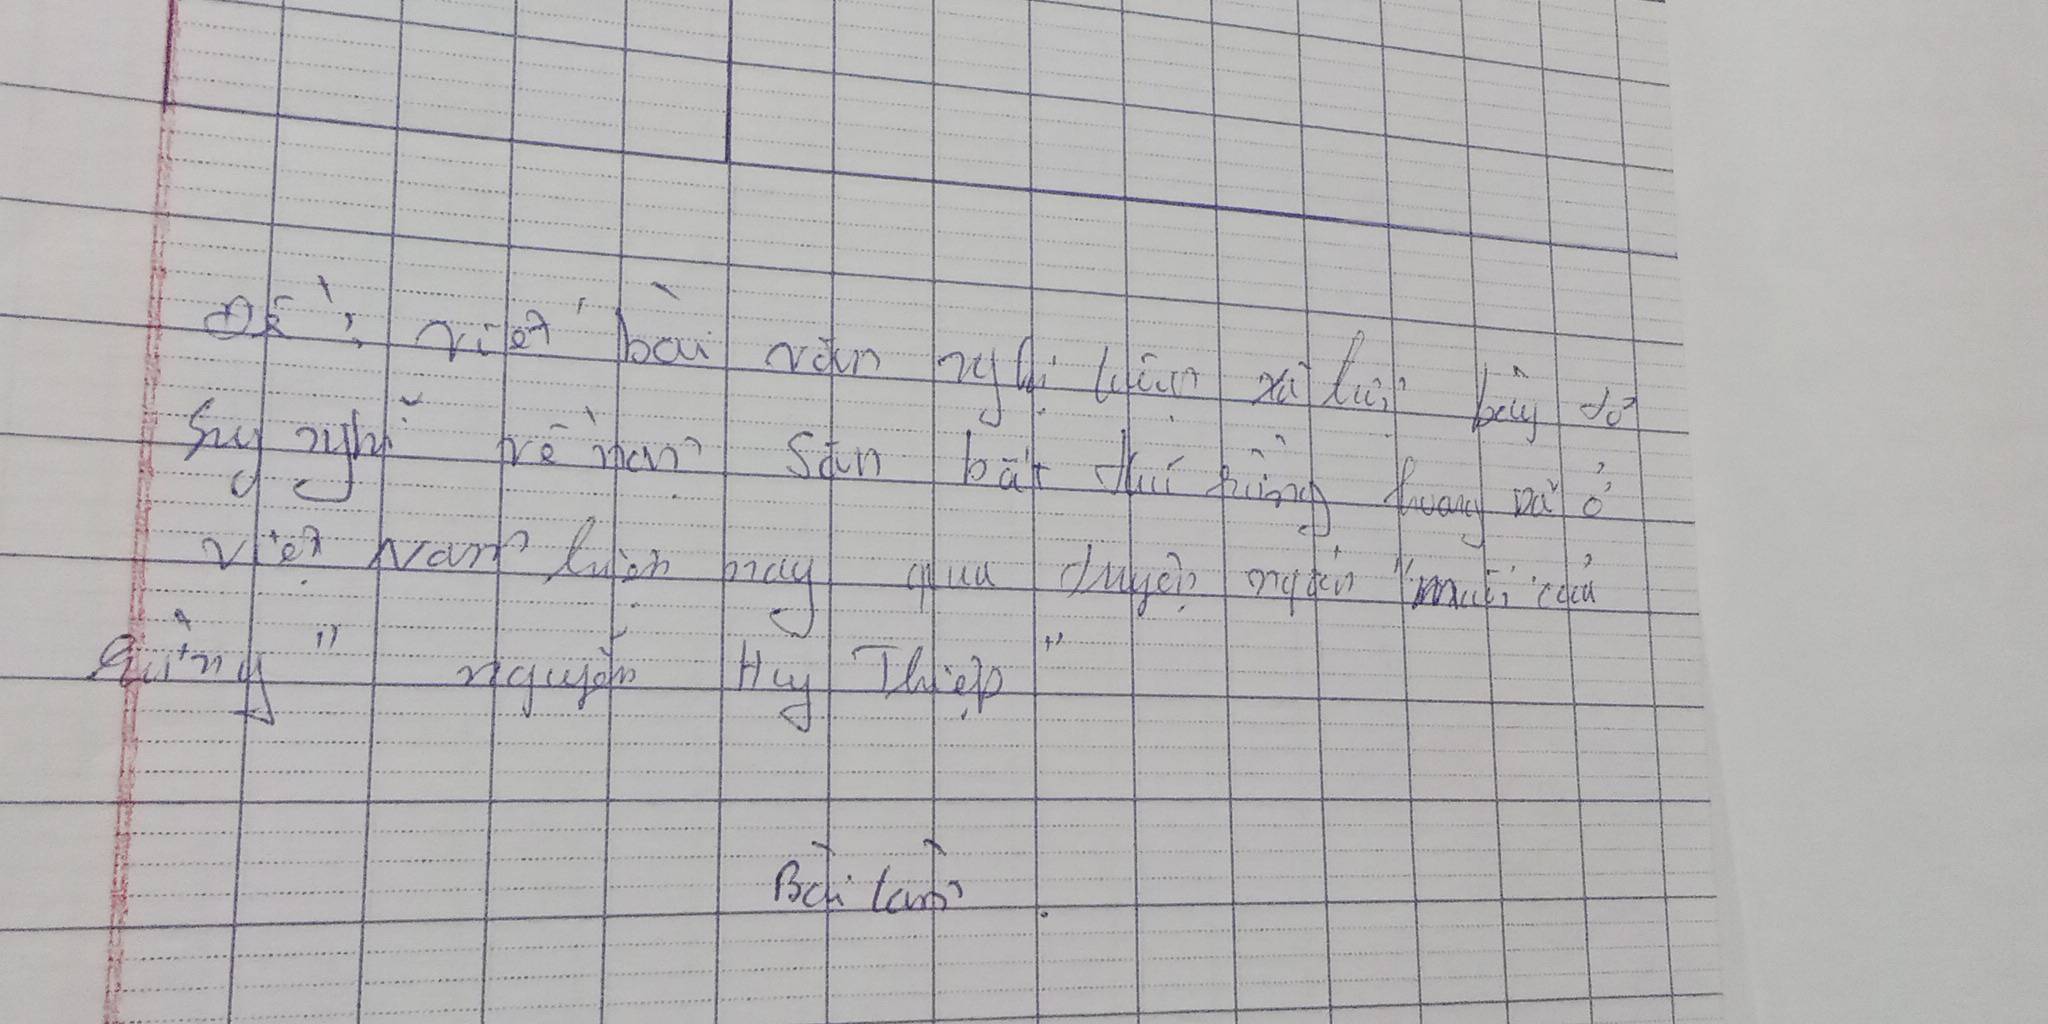 Đề: viết bài văn nghị luận xã hội bày tỏ
suy nghĩ về nạn săn bắt thú rừng hoang dã ở
Việt Nam hiện nay qua truyện ngắn "muối của
Rừng" nguyễn Huy Thiệp"
Bài làm